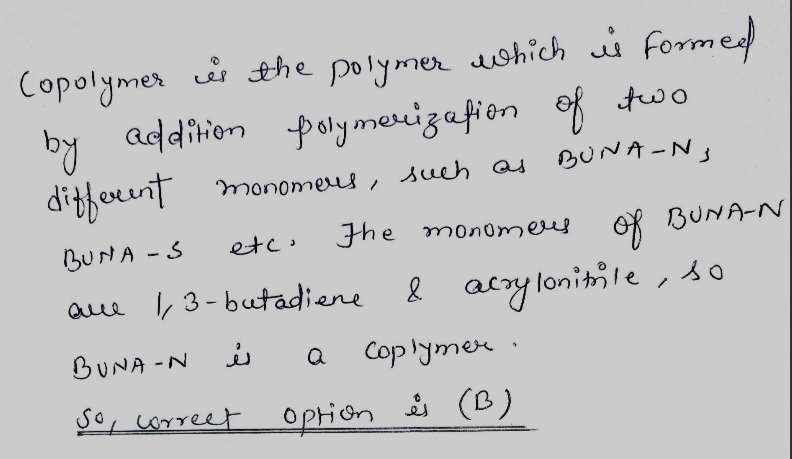 Copolymer is the polymer which is formed
by addition polymerization of two
different monomers, such as BUNA-N,
BUNA-S etc. The monomers of BUNA-N
are 1,3-butadiene & acrylonitrile, so
BUNA-N is a coplymer.
So, correct option is (B)